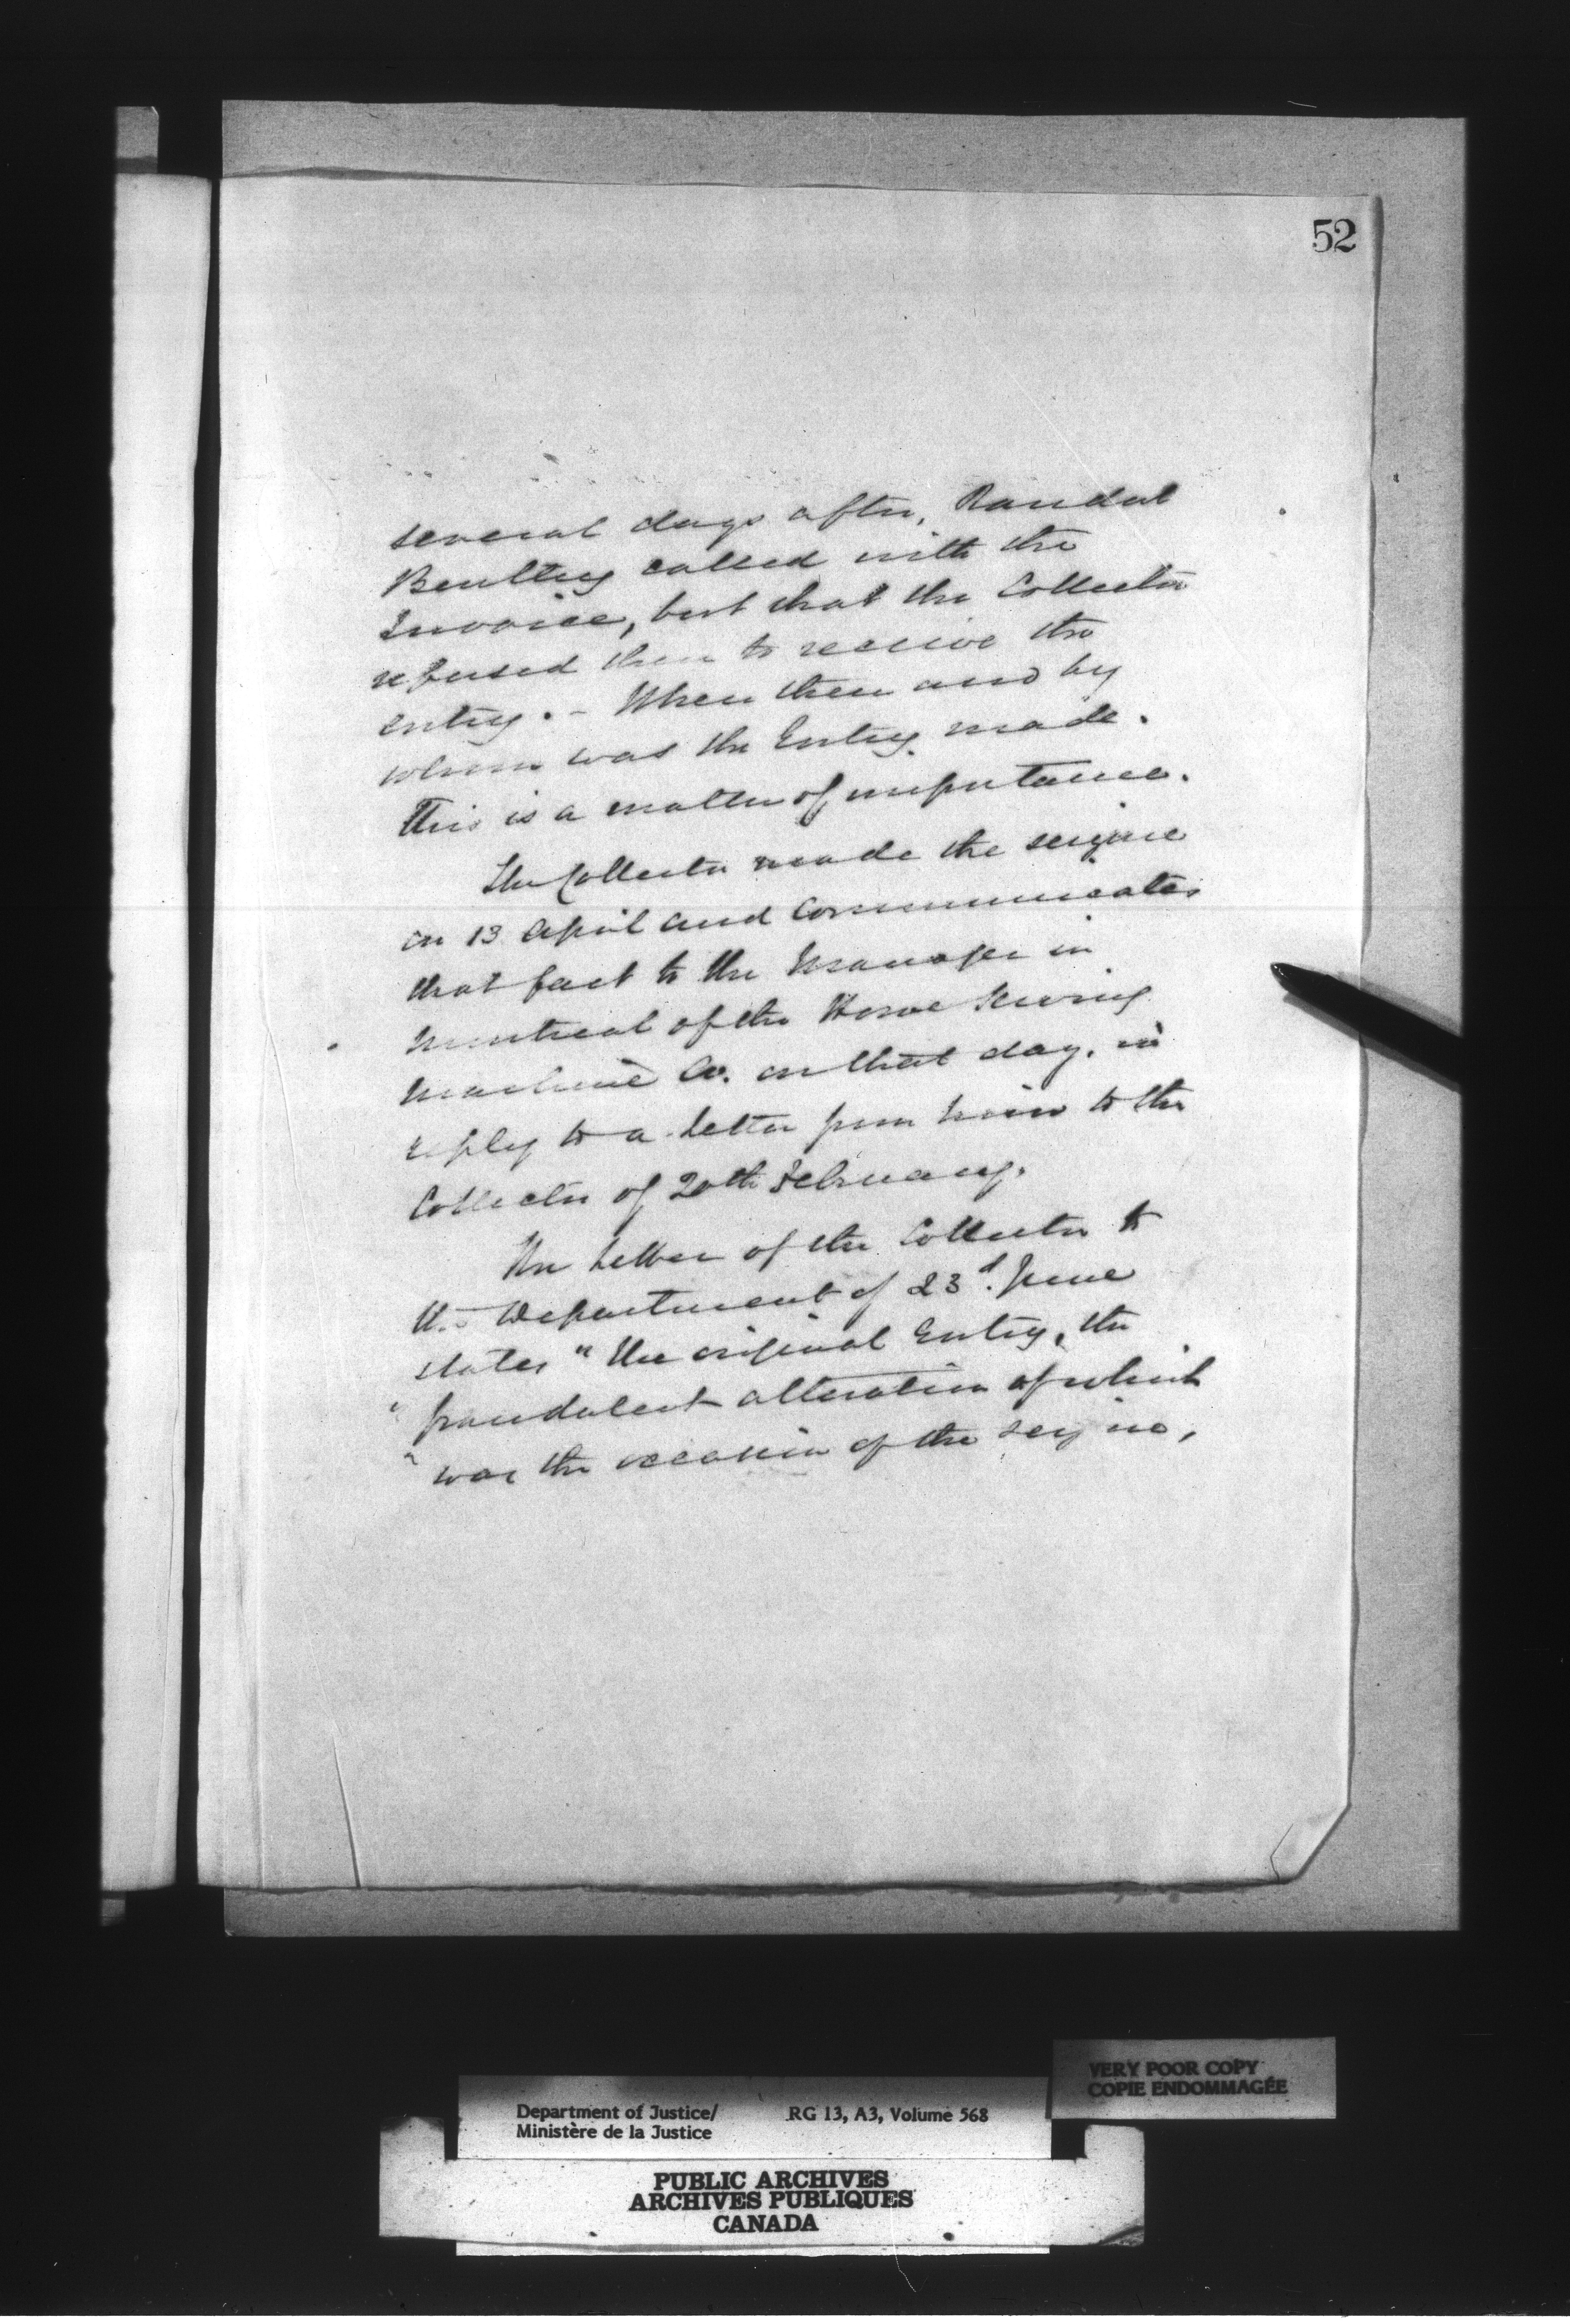 52
several days after, Randal
Bentley called with the
Invoice, but that the Collector
refused then to receive the
entry. – When then and by
whom was the Entry made.
This is a matter of importance.
The Collector made the seizure
on 13 April and communicates
that fact to the Manager in
Montreal of the Howe Sewing
Machine Co. on that day, in
reply to a letter from him to the
Collector of 20th February.
The letter of the Collector to
the Department of 23d. June
states "the original Entry, the
" fraudulent alteration of which
" was the occasion of the seizure,
VERY POOR COPY
COPIE ENDOMMAGÉE
Department of Justice/ RG 13, A3, Volume 568
Ministère de la Justice
PUBLIC ARCHIVES
ARCHIVES PUBLIQUES
CANADA